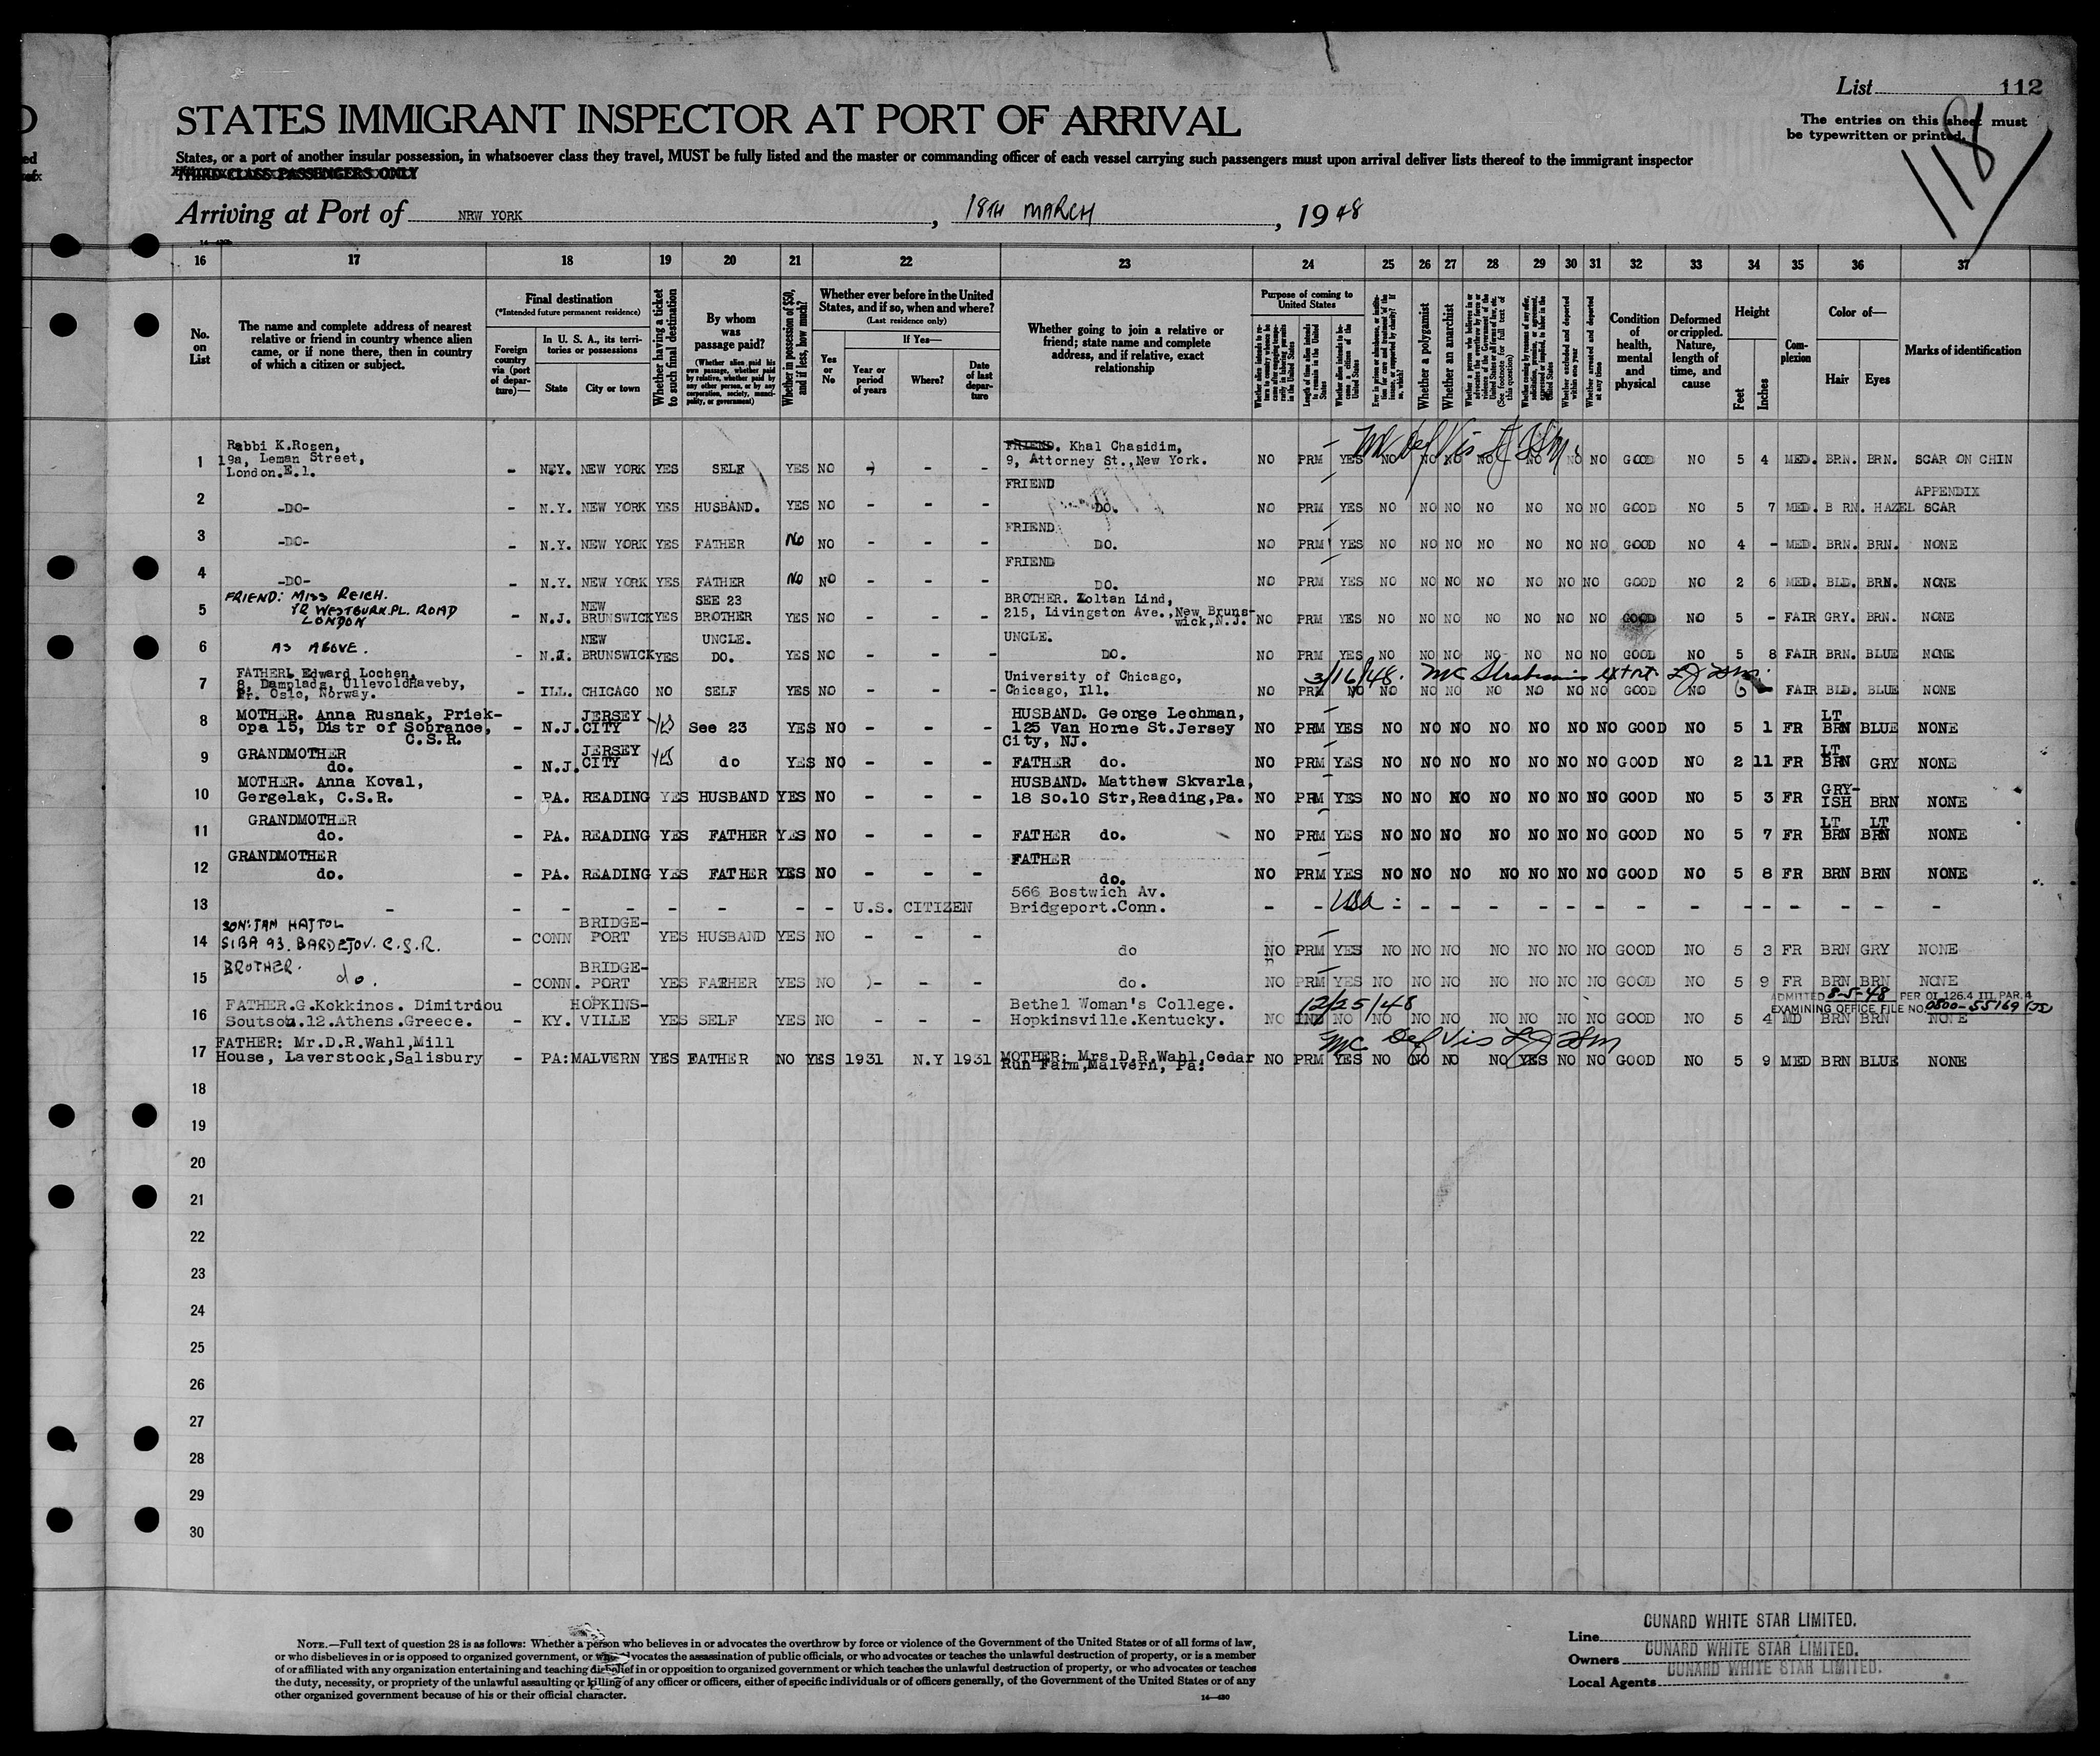 List 112
118
The entries on this sheet must
be typewritten or printed.
STATES IMMIGRANT INSPECTOR AT PORT OF ARRIVAL
States, or a port of another insular possession, in whatsoever class they travel, MUST be fully listed and the master or commanding officer of each vessel carrying such passengers must upon arrival deliver lists thereof to the immigrant inspector
THIRD CLASS PASSENGERS ONLY
Arriving at Port of NRW YORK, 18TH MARCH, 1948
16 17 18 19 20 21 22 23 24 25 26 27 28 29 30 31 32 33 34 35 36 37
No. on List
The name and complete address of nearest relative or friend in country whence alien came, or if none there, then in country of which a citizen or subject.
Final destination
(*Intended future permanent residence)
Foreign country via (port of departure)—
In U. S. A., its territories or possessions
State
City or town
Whether having a ticket to such final destination
By whom was passage paid?
(Whether alien paid his own passage, whether paid by relative, whether paid by any other person, or by any corporation, society, municipality, or government)
Whether in possession of $50, and if less, how much?
Whether ever before in the United States, and if so, when and where?
(Last residence only)
Yes or No
If Yes—
Year or period of years
Where?
Date of last departure
Whether going to join a relative or friend; state name and complete address, and if relative, exact relationship
Purpose of coming to United States
Length of time alien intends to remain in the United States
Whether alien intends to become a citizen of the United States
Whether a polygamist
Whether an anarchist
(See footnote for full text of this question)
Whether excluded and deported within one year
Whether arrested and deported at any time
Condition of health, mental and physical
Deformed or crippled. Nature, length of time, and cause
Height
Feet
Inches
Complexion
Color of—
Hair
Eyes
Marks of identification
1 Rabbi K.Rosen, 19a, Leman Street, London.E.1. - N.Y. NEW YORK YES SELF YES NO - - - FRIEND. Khal Chasidim, 9, Attorney St.,New York. NO PRM YES NO NO NO NO NO NO NO GOOD NO 5 4 MED. BRN. BRN. SCAR ON CHIN
2 -DO- - N.Y. NEW YORK YES HUSBAND. YES NO - - - FRIEND DO. NO PRM YES NO NO NO NO NO NO NO GOOD NO 5 7 MED. B RN. HAZEL APPENDIX SCAR
3 -DO- - N.Y. NEW YORK YES FATHER No NO - - - FRIEND DO. NO PRM YES NO NO NO NO NO NO NO GOOD NO 4 - MED. BRN. BRN. NONE
4 -DO- - N.Y. NEW YORK YES FATHER No NO - - - FRIEND DO. NO PRM YES NO NO NO NO NO NO NO GOOD NO 2 6 MED. BLD. BRN. NONE
5 FRIEND: MISS REICH. WESTBURN.PL. ROAD LONDON - N.J. NEW BRUNSWICK YES SEE 23 BROTHER YES NO - - - BROTHER. Zoltan Lind, 215, Livingston Ave.,New Brunswick,N.J. NO PRM YES NO NO NO NO NO NO NO GOOD NO 5 - FAIR GRY. BRN. NONE
6 AS ABOVE. - N.J. NEW BRUNSWICK YES UNCLE. DO. YES NO - - - UNCLE. DO. NO PRM YES NO NO NO NO NO NO NO GOOD NO 5 8 FAIR BRN. BLUE NONE
3/16/48.
7 FATHER. Edward Lochen, 8, Damplads, UllevoldHaveby, Pr. Oslo, Norway. - ILL. CHICAGO NO SELF YES NO - - - University of Chicago, Chicago, Ill. NO PRM NO NO NO NO NO NO NO NO GOOD NO 6 FAIR BLD. BLUE NONE
8 MOTHER. Anna Rusnak, Priekopa 15, Distr of Sobrance, C.S.R. - N.J. JERSEY CITY YES See 23 YES NO - - - HUSBAND. George Lechman, 125 Van Horne St.Jersey City, NJ. NO PRM YES NO NO NO NO NO NO NO GOOD NO 5 1 FR LT BRN BLUE NONE
9 GRANDMOTHER do. - N.J. JERSEY CITY YES do YES NO - - - FATHER do. NO PRM YES NO NO NO NO NO NO NO GOOD NO 2 11 FR LT BRN GRY NONE
10 MOTHER. Anna Koval, Gergelak, C.S.R. - PA. READING YES HUSBAND YES NO - - - HUSBAND. Matthew Skvarla, 18 So.10 Str,Reading,Pa. NO PRM YES NO NO NO NO NO NO NO GOOD NO 5 3 FR GRY-ISH BRN NONE
11 GRANDMOTHER do. - PA. READING YES FATHER YES NO - - - FATHER do. NO PRM YES NO NO NO NO NO NO NO GOOD NO 5 7 FR LT BRN LT BRN NONE
12 GRANDMOTHER do. - PA. READING YES FATHER YES NO - - - FATHER do. NO PRM YES NO NO NO NO NO NO NO GOOD NO 5 8 FR BRN BRN NONE
13 - - - - - - - - U.S. CITIZEN 566 Bostwich Av. Bridgeport.Conn. - - USA - - - - - - - - - - - - - - -
14 SON: JAN HAJTOL SIBA 93. BARDEJOV. C.S.R. - CONN BRIDGE-PORT YES HUSBAND YES NO - - - do NO PRM YES NO NO NO NO NO NO NO GOOD NO 5 3 FR BRN GRY NONE
15 BROTHER. do. - CONN. BRIDGE-PORT YES FATHER YES NO - - - do. NO PRM YES NO NO NO NO NO NO NO GOOD NO 5 9 FR BRN BRN NONE
ADMITTED 8-5-48 PER OI 126.4 III PAR.4
EXAMINING OFFICE FILE NO. 0800-55169
12/25/48
16 FATHER.G.Kokkinos. Dimitriou Soutsou.12.Athens.Greece. - KY. HOPKINS-VILLE YES SELF YES NO - - - Bethel Woman's College. Hopkinsville.Kentucky. NO IND NO NO NO NO NO NO NO NO GOOD NO 5 4 MD BRN BRN NONE
17 FATHER: Mr.D.R.Wahl,Mill House, Laverstock,Salisbury - PA: MALVERN YES FATHER NO YES 1931 N.Y 1931 MOTHER: Mrs D.R.Wahl,Cedar Run Farm,Malvern, Pa: NO PRM YES NO NO NO NO YES NO NO GOOD NO 5 9 MED BRN BLUE NONE
18
19
20
21
22
23
24
25
26
27
28
29
30
NOTE.—Full text of question 28 is as follows: Whether a person who believes in or advocates the overthrow by force or violence of the Government of the United States or of all forms of law,
or who disbelieves in or is opposed to organized government, or who advocates the assassination of public officials, or who advocates or teaches the unlawful destruction of property, or is a member
of or affiliated with any organization entertaining and teaching disbelief in or opposition to organized government or which teaches the unlawful destruction of property, or who advocates or teaches
the duty, necessity, or propriety of the unlawful assaulting or killing of any officer or officers, either of specific individuals or of officers generally, of the Government of the United States or of any
other organized government because of his or their official character.
14—420
CUNARD WHITE STAR LIMITED.
Line
Owners CUNARD WHITE STAR LIMITED.
Local Agents CUNARD WHITE STAR LIMITED.